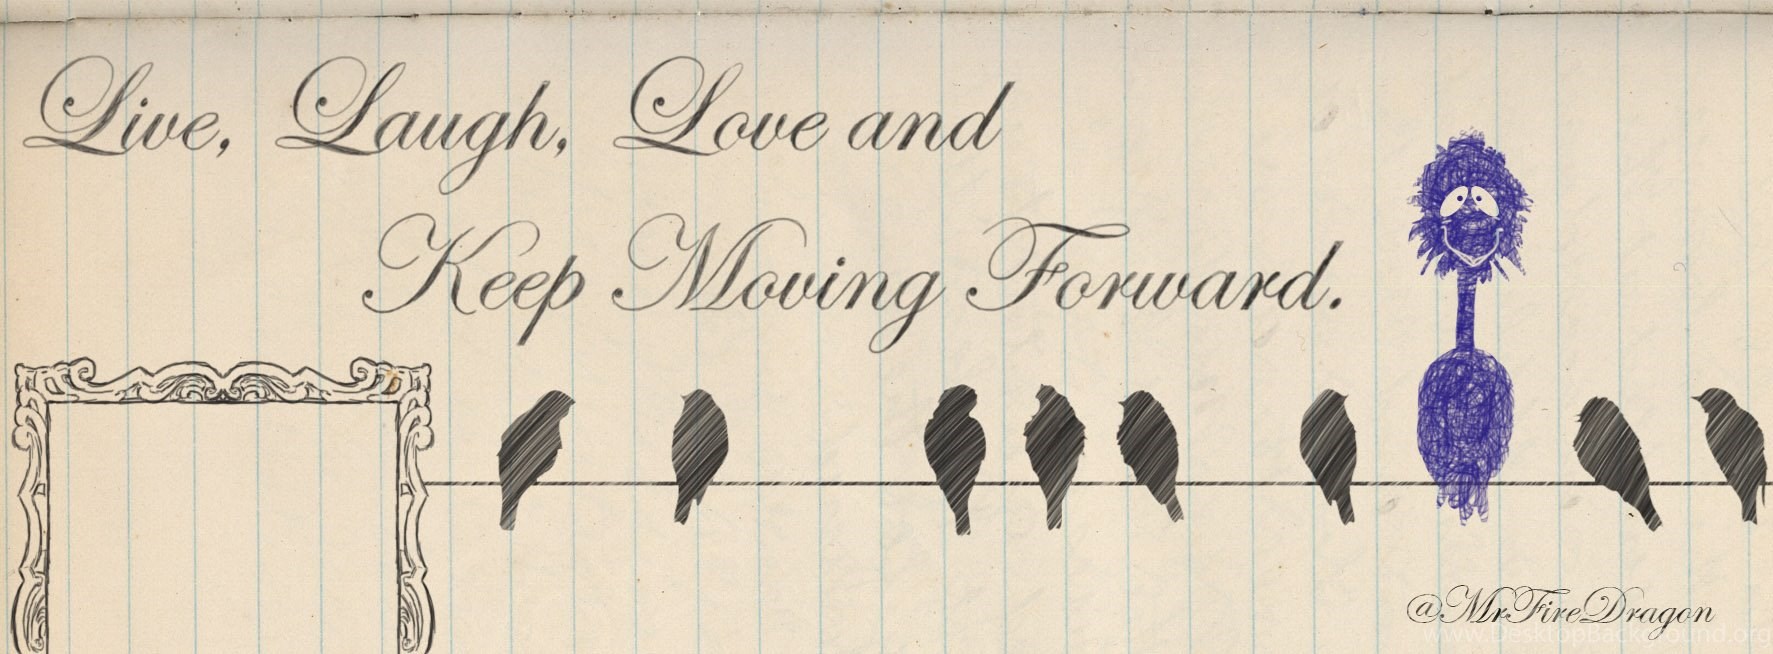 Live, Laugh, Love and
Keep Moving Forward.
@MrFireDragon
www.DesktopBackground.org